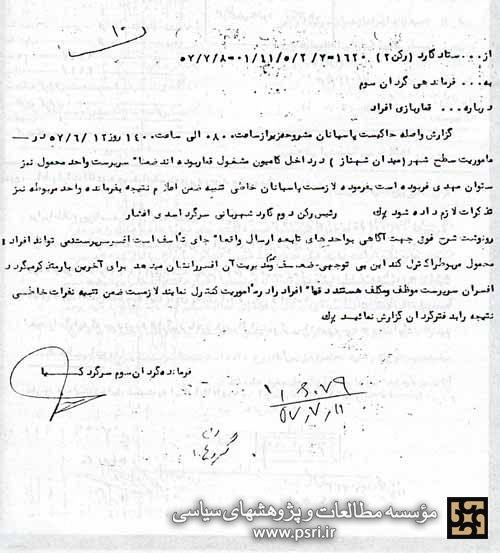 از ... ستاد گارد (رکن ۲) ۱۶۲۰-۲/۲/۵/۱۱/۰۱-۵۷/۷/۸
به ... فرماندهی گردان سوم
درباره ... قماربازی افراد
گزارش واصله حاکیست پاسبانان مشروحه زیر از ساعت ۰۸۰۰ الی ساعت ۱۴۰۰ روز ۵۷/۶/۱۲ در
ماموریت سطح شهر (میدان شهناز) در داخل کامیون مشغول قمار بوده اند ضمنا" سرپرست واحد محمول نیز
ستوان مهدی فرموده است بفرموده لازمست پاسبانان خاطی تنبیه ضمن اعلام نتیجه بفرمانده واحد مربوطه نیز
تذکرات لازم داده شود برك رئیس رکن دوم گارد شهربانی سرگرد اسدی افشار
رونوشت شرح فوق جهت آگاهی بواحدهای تابعه ارسال واقعا" جای تاسف است افسر سرپرست نمی تواند افراد
محمول مربوط را کنترل کند این بی توجهی ضعف مدیریت آن افسر را نشان میدهد برای آخرین بار متذکر میگردد
افسران سرپرست موظف و مکلف هستند دقیقا" افراد را در ماموریت کنترل نمایند لازمست ضمن تنبیه نفرات خاطی
نتیجه را بدفتر گردان گزارش نمائید برك
فرمانده گردان سوم سرگرد
۱۰۳۰۷۹
۵۷/۷/۱۱
مؤسسه مطالعات و پژوهشهای سیاسی
www.psri.ir